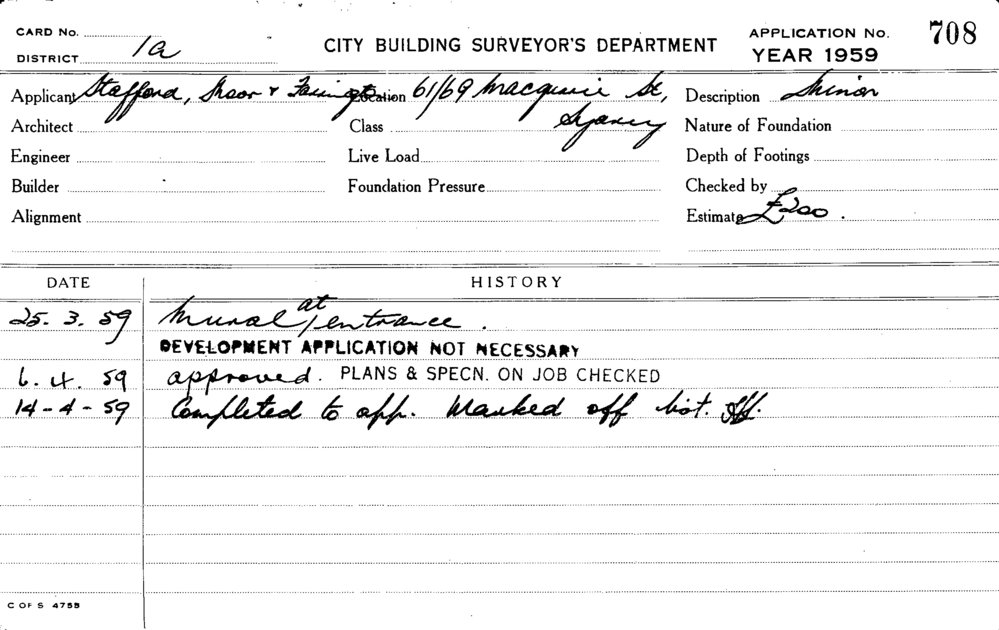 CARD No. APPLICATION No. 708
DISTRICT 1a CITY BUILDING SURVEYOR'S DEPARTMENT YEAR 1959
Applicant Stafford, Moor & Farrington Location 61/69 Macquarie St, Description Minor
Architect Class Sydney Nature of Foundation
Engineer Live Load Depth of Footings
Builder Foundation Pressure Checked by
Alignment Estimate £200.
DATE HISTORY
25.3.59 Mural at entrance.
DEVELOPMENT APPLICATION NOT NECESSARY
6.4.59 approved. PLANS & SPECN. ON JOB CHECKED
14-4-59 Completed to app. Marked off list.
C OF S 4759